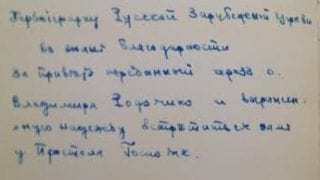 Первоіерарху Русской Зарубежной Церкви
в знак благодарности
за привет переданный через о.
Владимира Родзянко и выражен
ную надежду встретиться с вами
у Престола Господня.